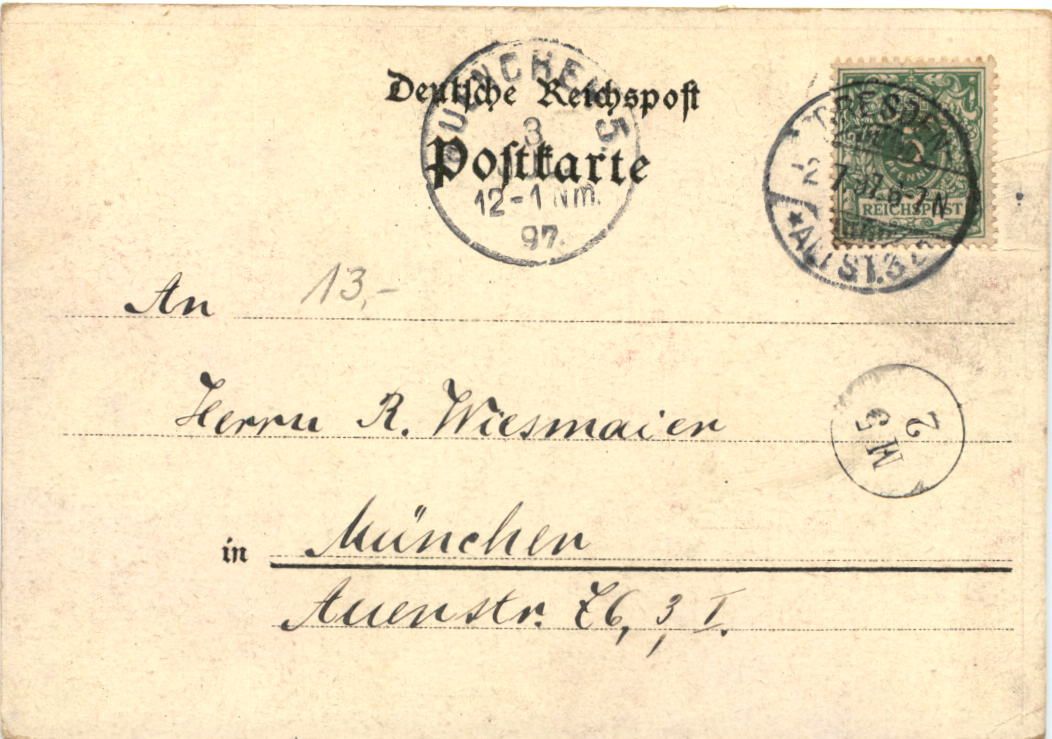 Deutsche Reichspost
Postkarte
MÜNCHEN 5.
3
12-1 Nm.
97.
DRESDEN
2 7 97 6-7N
*ALTST. 3
PFENNIG
REICHSPOST
An
13,-
Herrn R. Wiesmaier
2
M 5
in München
Auenstr. 76, 3, I.